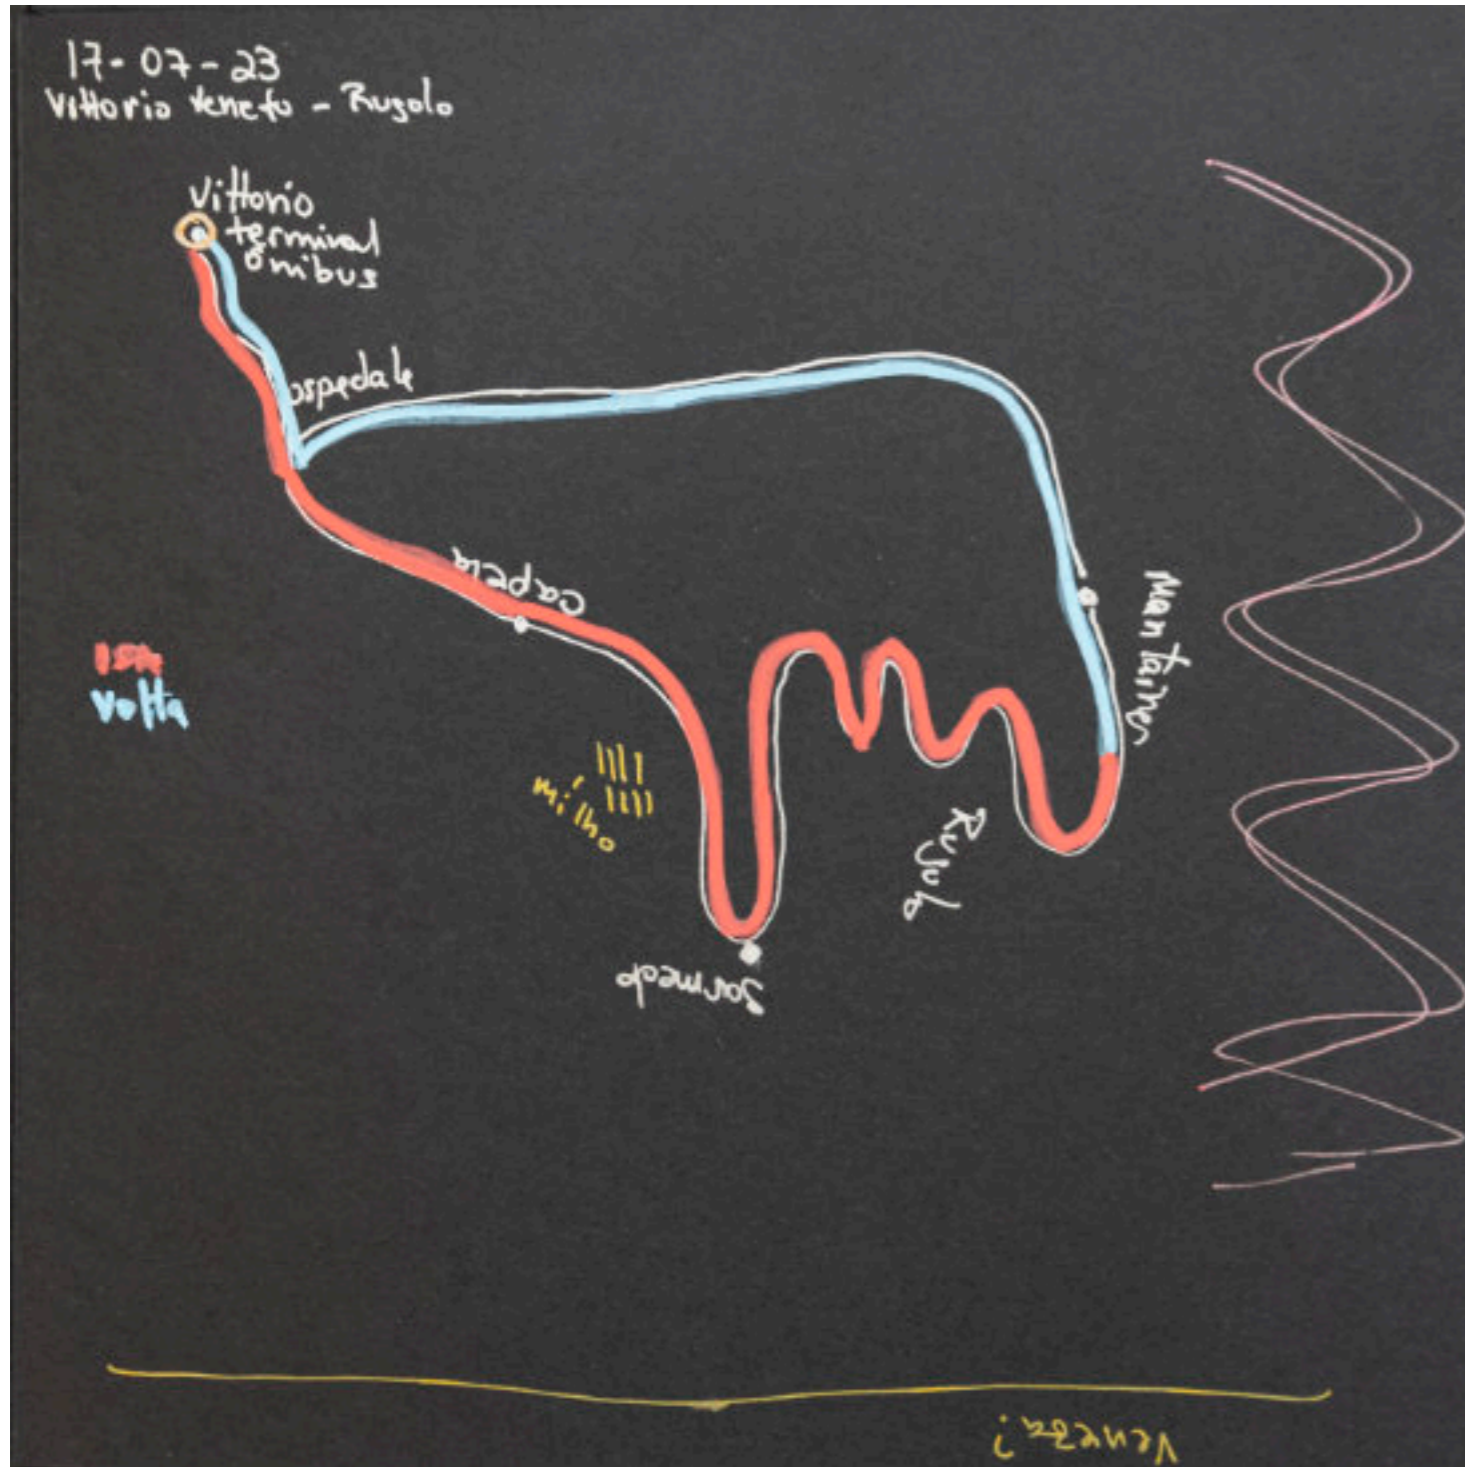 17-07-23
Vittorio Veneto - Rugolo
Vittorio
terminal
onibus
ospedale
Capela
Mantaner
volta
milho
Rugolo
Sarmede
Veneza?